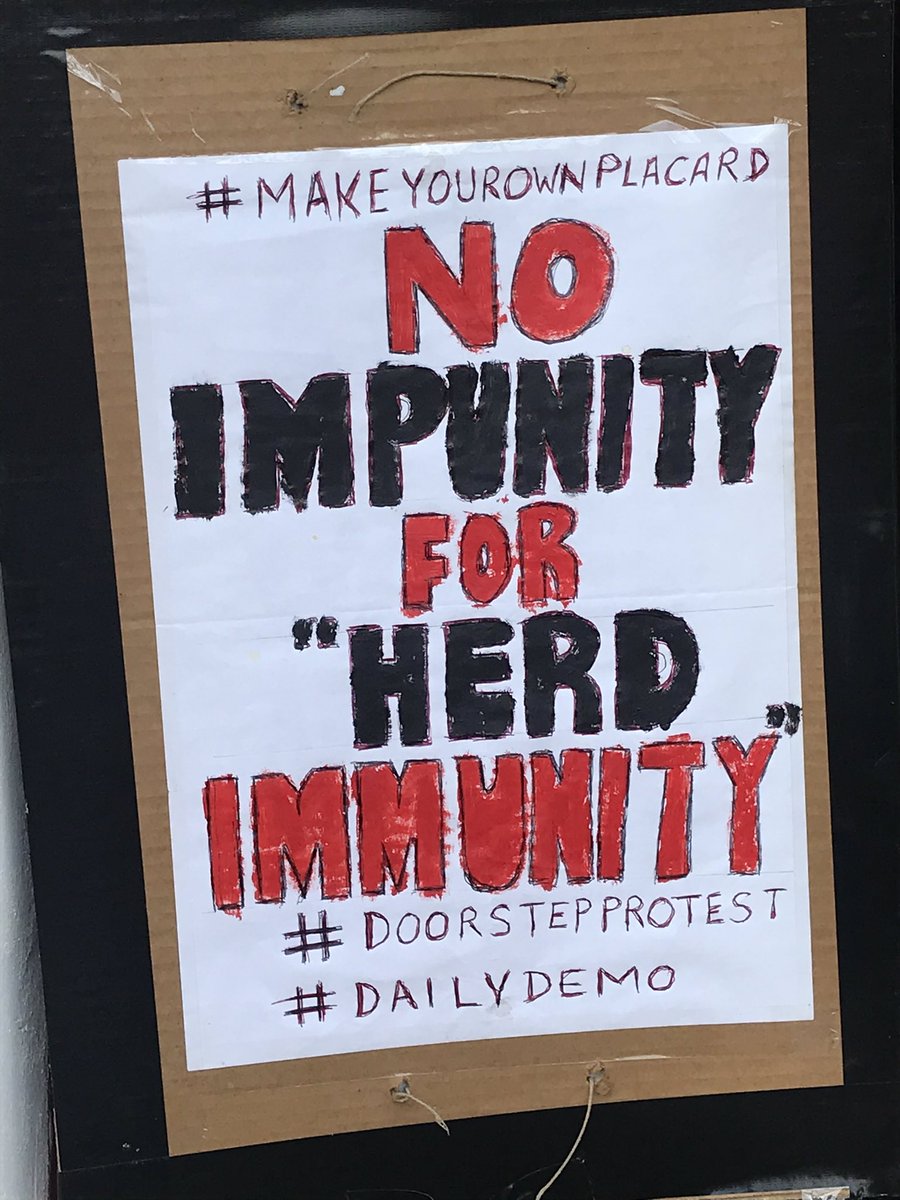 #MAKEYOUROWNPLACARD
NO
IMPUNITY
FOR
"HERD
IMMUNITY"
#DOORSTEPPROTEST
#DAILYDEMO